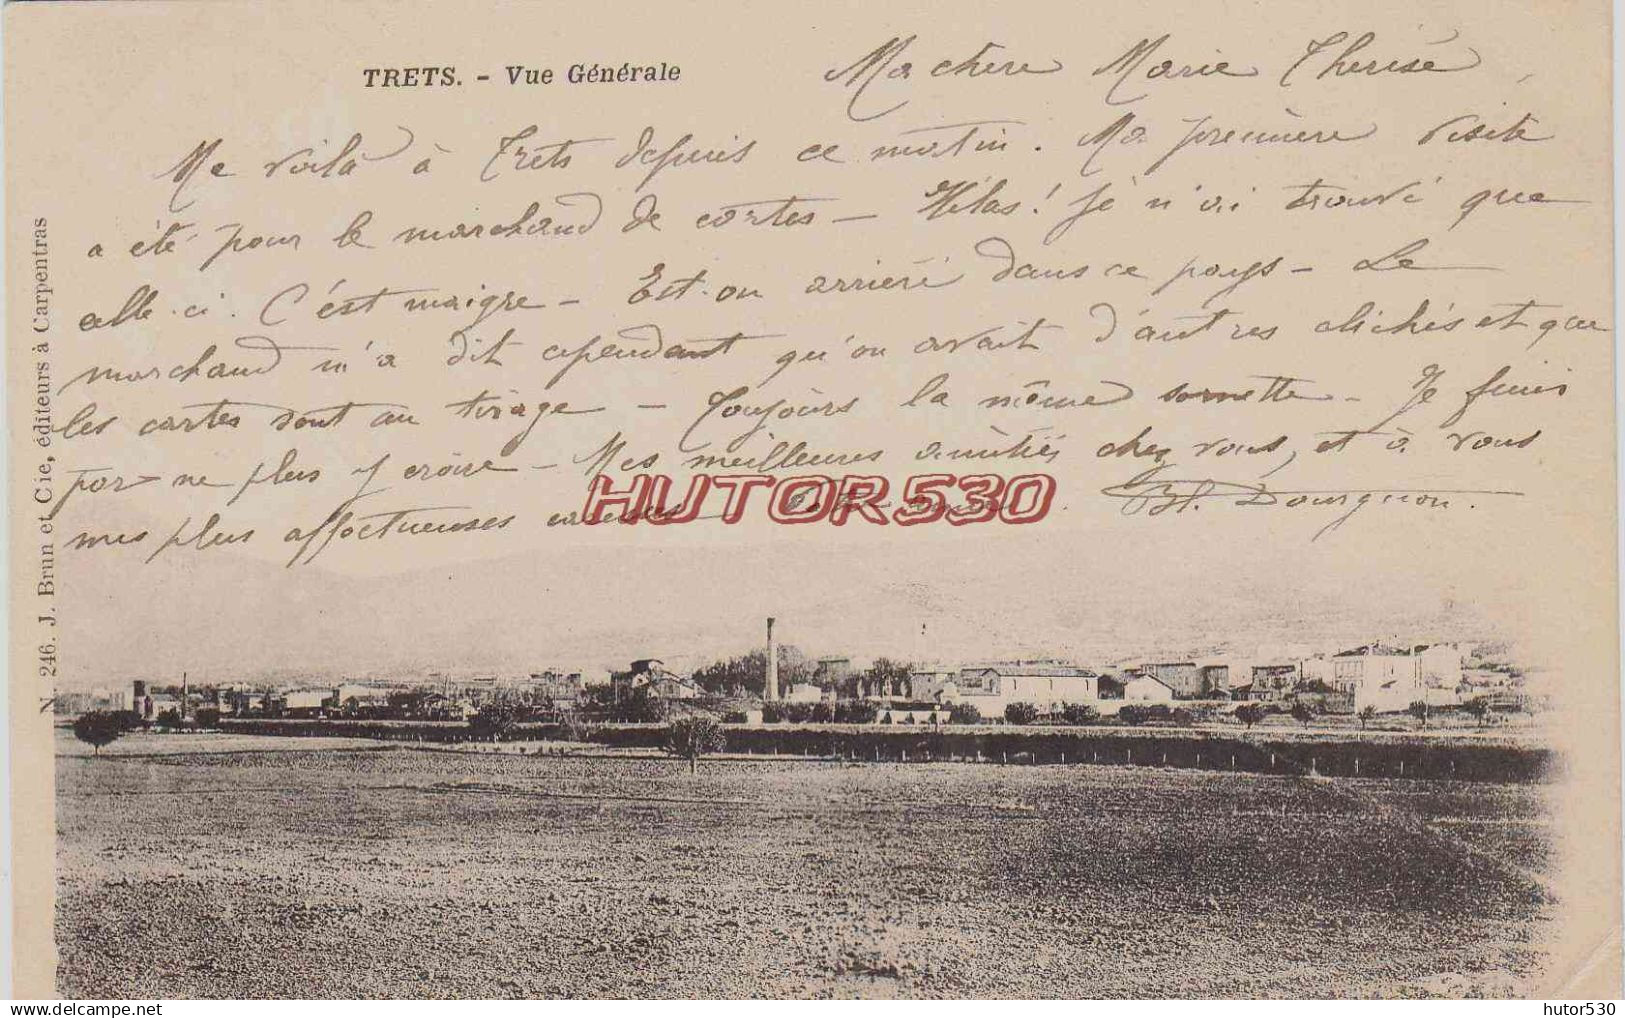 TRETS. - Vue Générale
Ma chère Marie Thérèse,
Me voilà à Trets depuis ce matin. Ma première visite
a été pour le marchand de cartes - Hélas! Je n'ai trouvé que
celle-ci. C'est maigre - Est-on arriéré dans ce pays - Le
marchand m'a dit cependant qu'on avait d'autres clichés et que
les cartes sont au tirage - Toujours la même sornette - Je finis
par ne plus y croire - Mes meilleures amitiés chez vous, et à vous
mes plus affectueuses caresses
Bl. Dourgnon.
N. 246. J. Brun et Cie, éditeurs à Carpentras
HUTOR530
hutor530